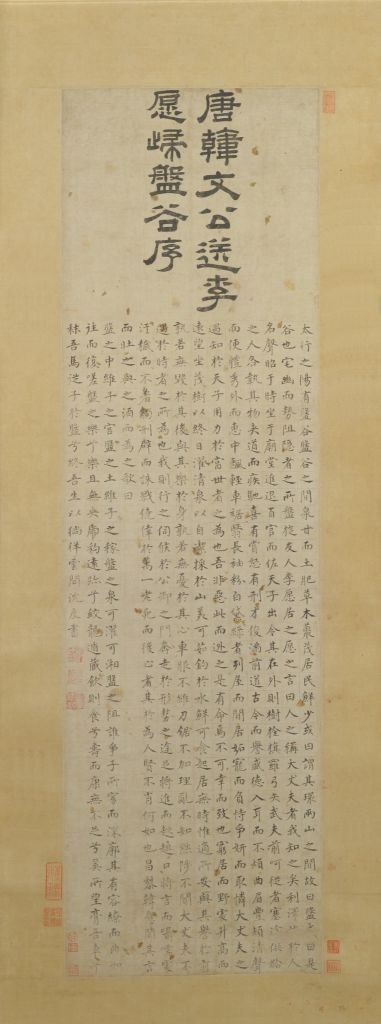 唐韓文公送李
愿歸盤谷序
太行之陽有盤谷盤谷之間泉甘而土肥草木叢茂居民鮮少或曰謂其環兩山之間故曰盤或曰是
谷也宅幽而勢阻隱者之所盤旋友人李愿居之愿之言曰人之稱大丈夫者我知之矣利澤施於人
名聲昭于時坐于廟堂進退百官而佐天子出令其在外則樹旗旄羅弓矢武夫前呵從者塞途供給
之人各執其物夾道而疾馳喜有賞怒有刑才俊滿前道古今而譽盛德入耳而不煩曲眉豐頰清聲
而便體秀外而惠中飄輕裾翳長袖粉白黛綠者列屋而閒居妬寵而負恃爭妍而取憐大丈夫之
遇知於天子用力於當世者之為也吾非惡此而逃之是有命焉不可幸而致也窮居而野處升高而
遠望坐茂樹以終日濯清泉以自潔採於山美可茹釣於水鮮可食起居無時惟適所安與其譽於前
孰若無毀於其後與其樂於身孰若無憂於其心車服不維刀鋸不加理亂不知黜陟不聞大丈夫不
遇於時者之所為也我則行之伺候於公卿之門奔走於形勢之途足將進而趑趄口將言而囁嚅處
汙穢而不羞觸刑辟而誅戮僥倖於萬一老死而後止者其於為人賢不肖何如也昌黎韓愈聞其言
而壯之與之酒而為之歌曰
盤之中維子之宮盤之土維子之稼盤之泉可濯可湘盤之阻誰爭子所窈而深廓其有容繚而曲如
往而復嗟盤之樂兮樂且無央虎豹遠跡兮蛟龍遁藏飲則食兮壽而康無不足兮奚所望膏吾車兮
秣吾馬從子於盤兮終吾生以徜徉雲間沈度書